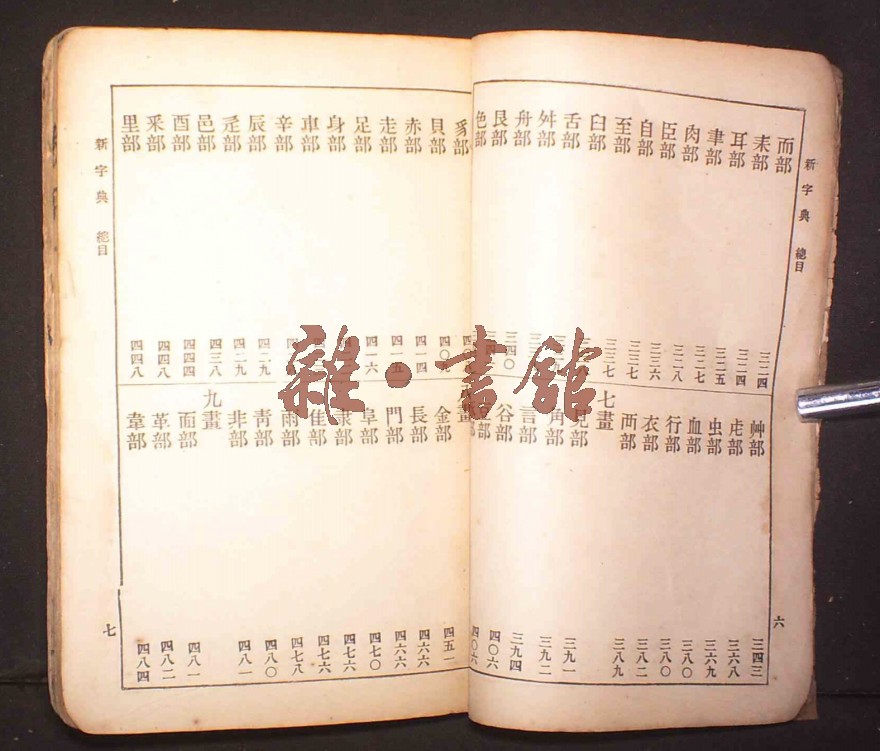 新字典 總目
而部 三二四
耒部 三二四
耳部 三二五
聿部 三二七
肉部 三二八
臣部 三三六
自部 三三七
至部 三三七
臼部
舌部
舛部
舟部
艮部 三四〇
色部
艸部 三四三
虍部 三六八
虫部 三六九
血部 三八〇
行部 三八〇
衣部 三八二
襾部 三八九
七畫
見部 三九一
角部 三九二
言部 三九四
谷部 四〇六
豆部 四〇六
六
豸部
貝部
赤部 四一四
走部 四一五
足部 四一六
身部
車部
辛部
辰部 四二九
辵部 四二九
邑部 四三八
酉部 四四四
釆部 四四八
里部 四四八
畫
金部 四五一
長部 四六六
門部 四六六
阜部 四七〇
隶部 四七六
隹部 四七六
雨部 四七八
靑部 四八〇
非部 四八一
九畫
面部 四八一
革部 四八二
韋部 四八四
新字典 總目
七
雜·書館